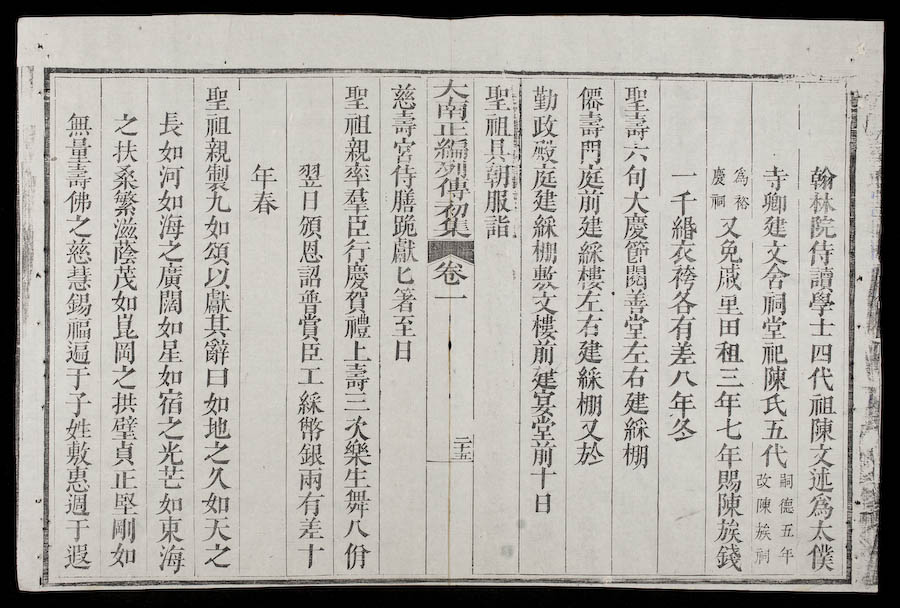 翰林院侍讀學士四代祖陳文述爲太僕
寺卿建文舍祠堂祀陳氏五代嗣德五年改陳族祠
爲裕慶祠又免戚里田租三年七年賜陳族錢
一千緡衣袴各有差八年冬
聖壽六旬大慶節閱善堂左右建綵棚
僊壽門庭前建綵樓左右建綵棚又於
勤政殿庭建綵棚敷文樓前建宴堂前十日
聖祖具朝服詣
大南正編列傳初集 卷一 二十五
慈壽宮侍膳跪獻匕箸至日
聖祖親率羣臣行慶賀禮上壽三次樂生舞八佾
翌日頒恩詔普賞臣工綵幣銀兩有差十
年春
聖祖親製九如頌以獻其辭曰如地之久如天之
長如河如海之廣闊如星如宿之光芒如東海
之扶桑繁滋蔭茂如崑岡之拱璧貞正堅剛如
無量壽佛之慈慧錫福遍于子姓敷惠週于遐